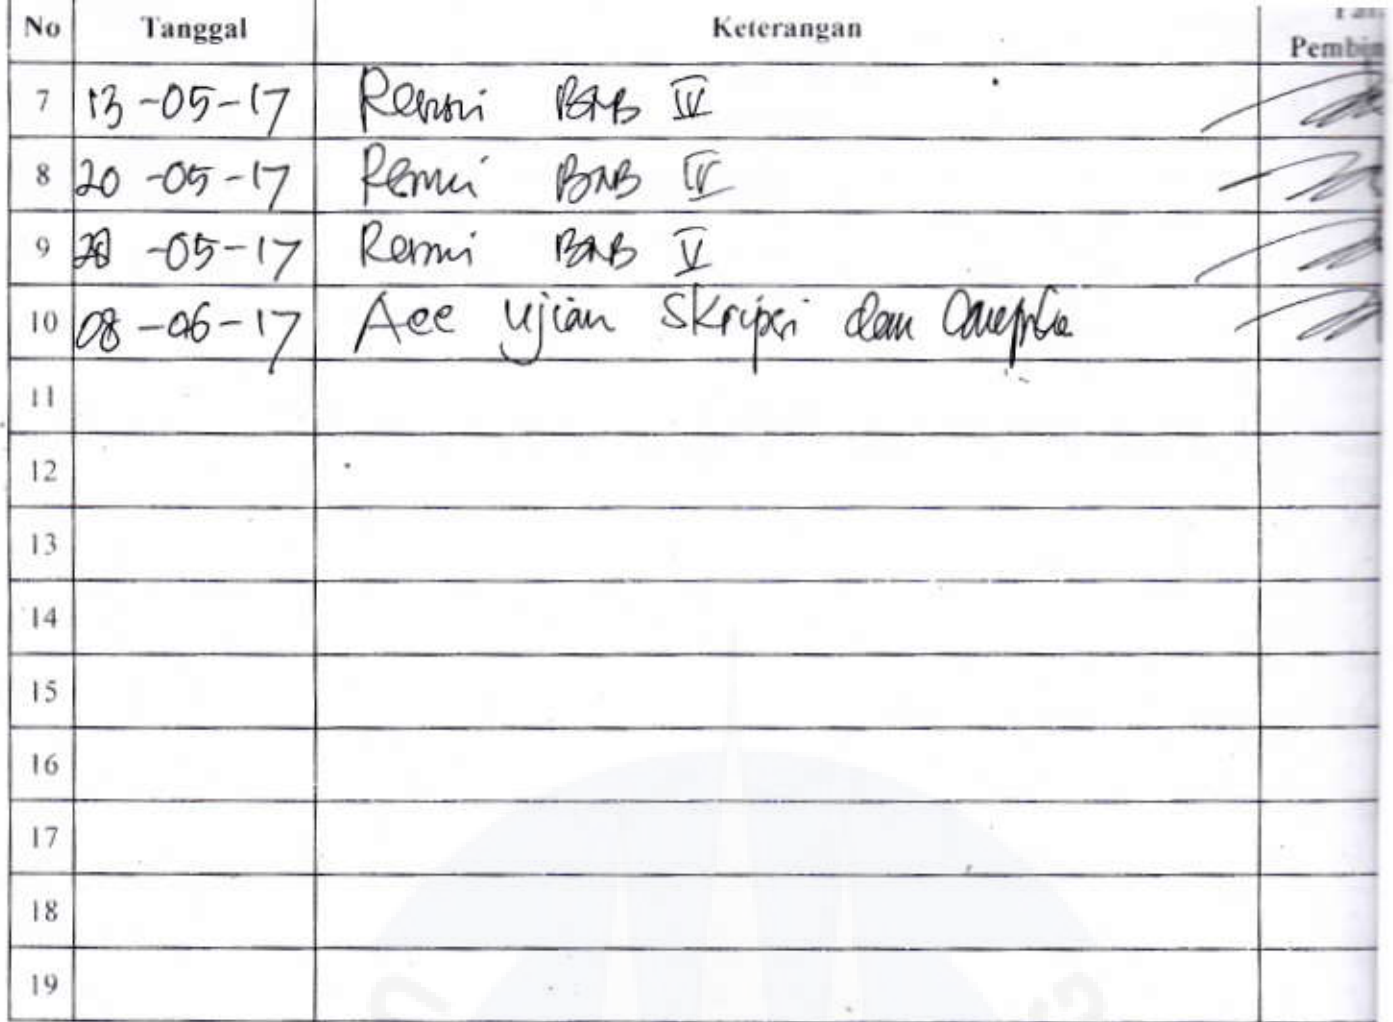 No Tanggal Keterangan
Pembim
7 13-05-17 Revisi BAB IV
8 20-05-17 Revisi BAB IV
9 28-05-17 Revisi BAB V
10 08-06-17 Acc Ujian Skripsi dan
11
12
13
14
15
16
17
18
19